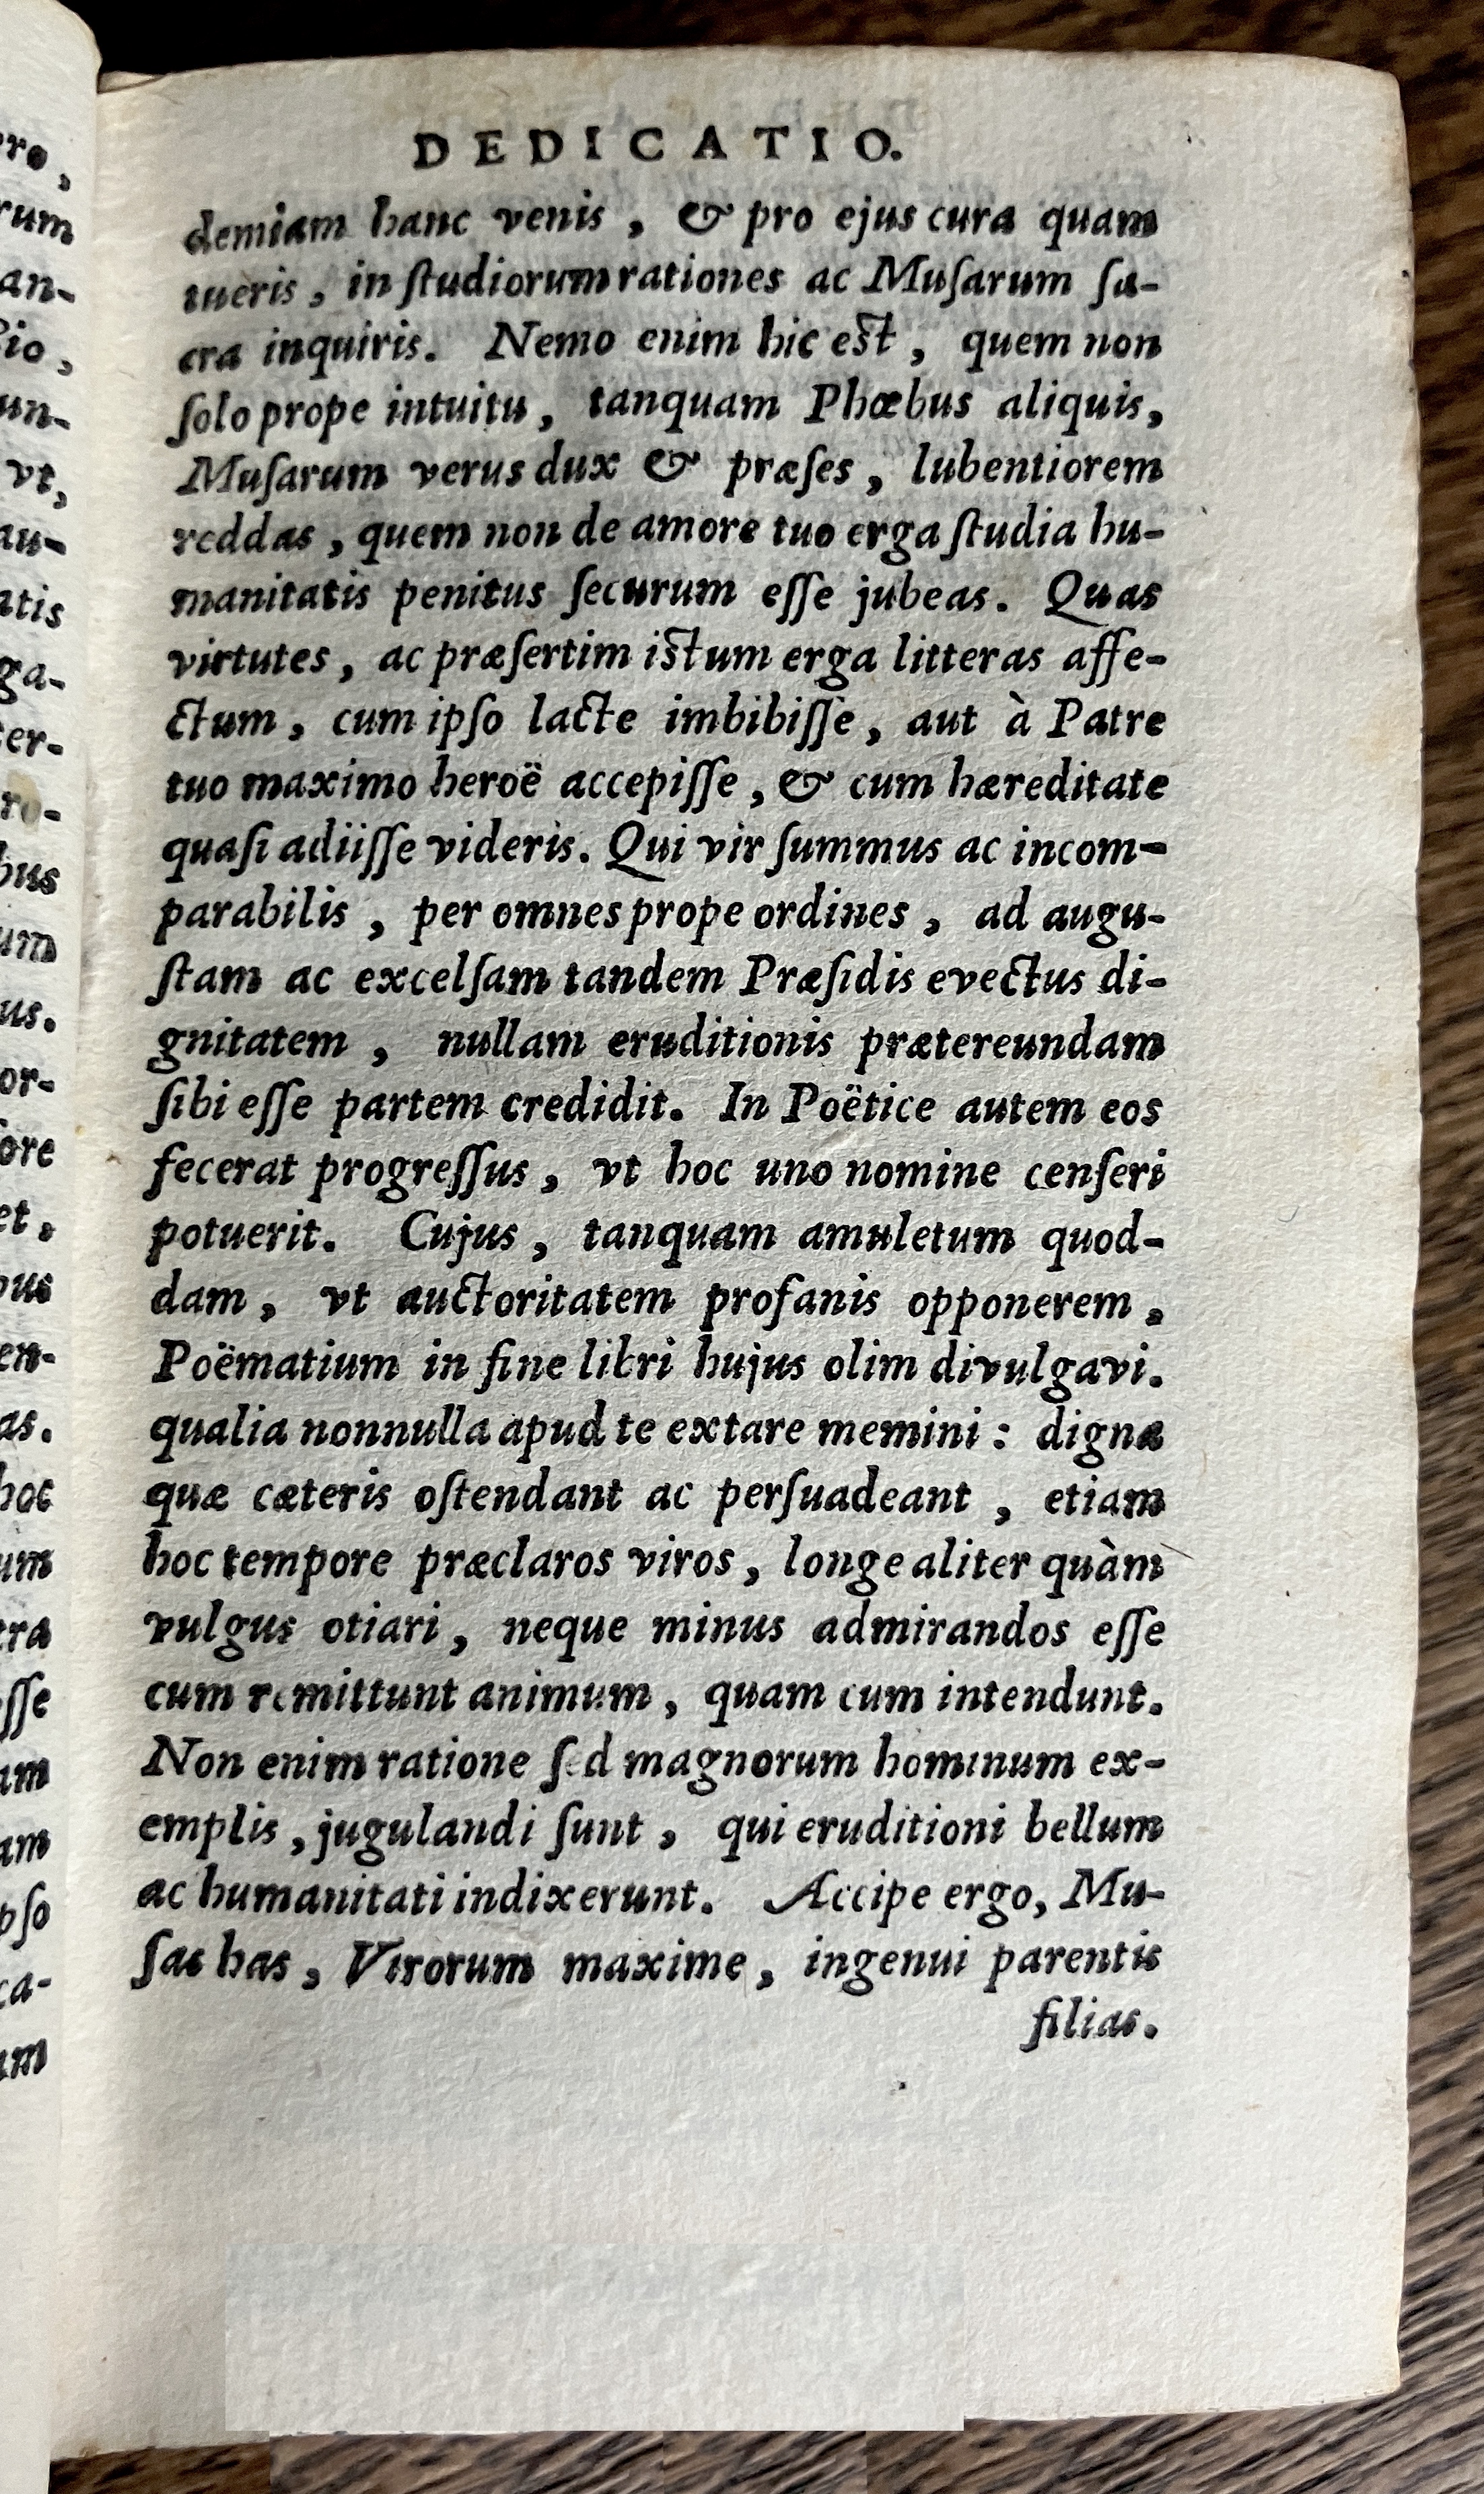 DEDICATIO.
demiam hanc venis, & pro ejus cura quam
tueris, in ſtudiorum rationes ac Muſarum ſa-
cra inquiris. Nemo enim hic eſt, quem non
ſolo prope intuitu, tanquam Phœbus aliquis,
Muſarum verus dux & præſes, lubentiorem
reddas, quem non de amore tuo erga ſtudia hu-
manitatis penitus ſecurum eſſe jubeas. Quas
virtutes, ac præſertim iſtum erga litteras affe-
ctum, cum ipſo lacte imbibiſſe, aut à Patre
tuo maximo heroë accepiſſe, & cum hæreditate
quaſi adiiſſe videris. Qui vir ſummus ac incom-
parabilis, per omnes prope ordines, ad augu-
ſtam ac excelſam tandem Præſidis evectus di-
gnitatem, nullam eruditionis prætereundam
ſibi eſſe partem credidit. In Poëtice autem eos
fecerat progreſſus, vt hoc uno nomine cenſeri
potuerit. Cujus, tanquam amuletum quod-
dam, vt auctoritatem profanis opponerem,
Poëmatium in fine libri hujus olim divulgavi.
qualia nonnulla apud te extare memini: digna
quæ cæteris oſtendant ac perſuadeant, etiam
hoc tempore præclaros viros, longe aliter quàm
vulgus otiari, neque minus admirandos eſſe
cum remittunt animum, quam cum intendunt.
Non enim ratione ſed magnorum hominum ex-
emplis, jugulandi ſunt, qui eruditioni bellum
ac humanitati indixerunt. Accipe ergo, Mu-
ſas has, Virorum maxime, ingenui parentis
filias.
pro,
rum
an-
io,
un-
vt,
au-
atis
ga-
ter-
ro-
bus
um
us.
or-
ore
et,
pus
en-
as.
hoc
um
tra
eſſe
am
am
pſo
ca-
um